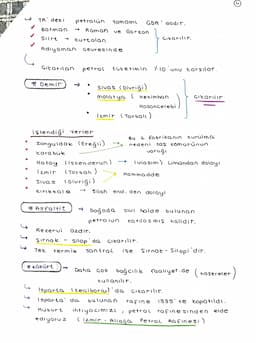 ↳ TR'deki petrolün tamamı GDA'dadır.
✓ Batman → Raman ve Garzan
✓ Siirt → Kurtalan
✓ Adıyaman çevresinde
} Çıkarılır.
↳ Çıkarılan petrol tüketimin %10'unu karşılar.
* Demir
• Sivas (Divriği)
• Malatya (Hekimhan Hasançelebi)
• İzmir (Torbalı)
} Çıkarılır
İşlendiği Yerler
• Zonguldak (Ereğli)
• Karabük
Bu 2 fabrikanın kurulma nedeni taş kömürünün
• Hatay (İskenderun) → (Ulaşım) Limandan dolayı
• İzmir (Torbalı)
• Sivas (Divriği)
→ Hammadde
• Kırıkkale → Silah end.den dolayı
* Asfaltit
→ Doğada sıvı halde bulunan petrolün katılaşmış halidir.
↳ Rezervi azdır.
↳ Şırnak - Silopi'da çıkarılır.
↳ Tek termik santral ise Şırnak-Silopi'dir.
* Kükürt
→ Daha çok bağcılık faaliyet.de kullanılır.
↳ Isparta (Keçiborlu)'da çıkarılır.
↳ Isparta'da bulunan rafine 1995'te kapatıldı.
↳ Kükürt ihtiyacımızı, petrol rafinesinden elde ediyoruz (İzmir-Aliağa Petrol Rafinesi)